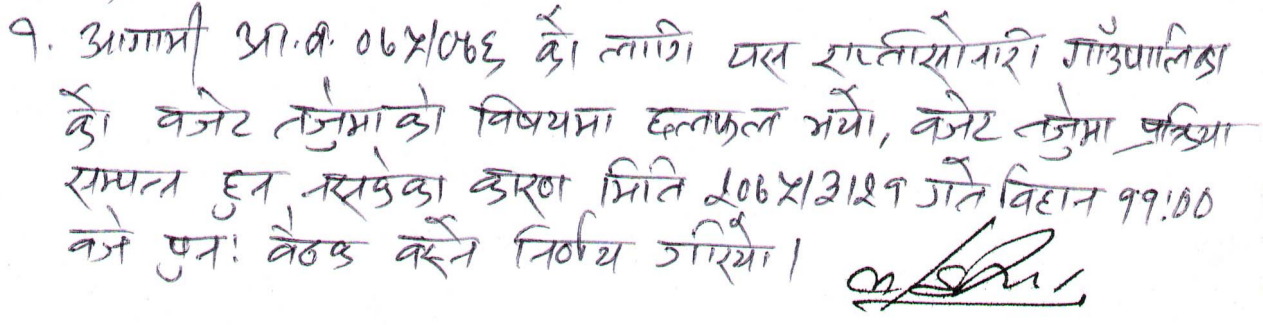 १. आगामी आ.व. ०७५/०७६ को लागि यस राप्तीसोनारी गाँउपालिका
को वजेट तर्जुमाको विषयमा छलफल भयो, वजेट तर्जुमा प्रक्रिया
सम्पन्न हुन नसकेका कारण मिति २०७५/३/२१ गते विहान ११:००
वजे पुन: वैठक वस्ने निर्णय गरियो।